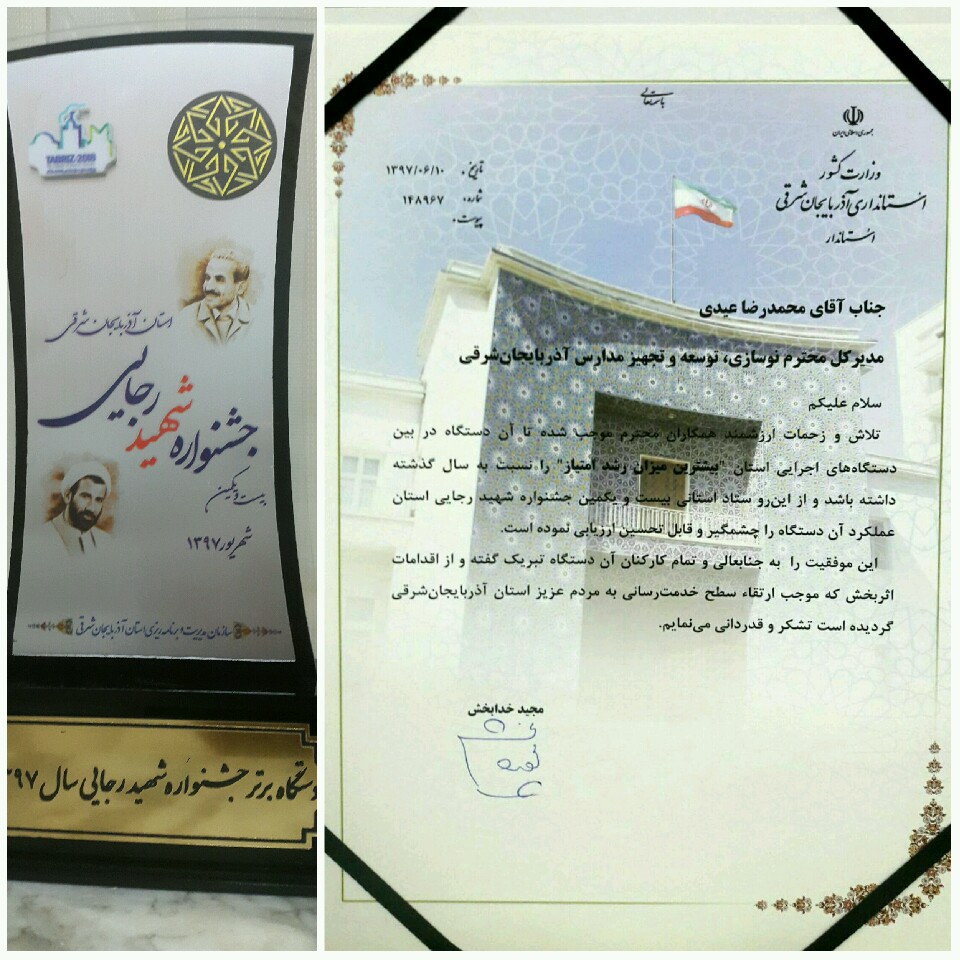 TABRIZ-2018
استان آذربایجان شرقی
جشنواره شهید رجایی
بیست و یکمین
شهریور ۱۳۹۷
سازمان مدیریت و برنامه ریزی استان آذربایجان شرقی
دستگاه برتر جشنواره شهید رجایی سال ۱۳۹۷
باسمه تعالی
جمهوری اسلامی ایران
وزارت کشور
استانداری آذربایجان شرقی
استاندار
تاریخ . ۱۳۹۷/۰۶/۱۰
شماره. ۱۴۸۹۶۷
پیوست.
جناب آقای محمدرضا عیدی
مدیرکل محترم نوسازی، توسعه و تجهیز مدارس آذربایجان‌شرقی
سلام علیکم
تلاش و زحمات ارزشمند همکاران محترم موجب شده تا آن دستگاه در بین
دستگاه‌های اجرایی استان "بیشترین میزان رشد امتیاز" را نسبت به سال گذشته
داشته باشد و از این‌رو ستاد استانی بیست و یکمین جشنواره شهید رجایی استان
عملکرد آن دستگاه را چشمگیر و قابل تحسین ارزیابی نموده است.
این موفقیت را به جنابعالی و تمام کارکنان آن دستگاه تبریک گفته و از اقدامات
اثربخش که موجب ارتقاء سطح خدمت‌رسانی به مردم عزیز استان آذربایجان‌شرقی
گردیده است تشکر و قدردانی می‌نمایم.
مجید خدابخش